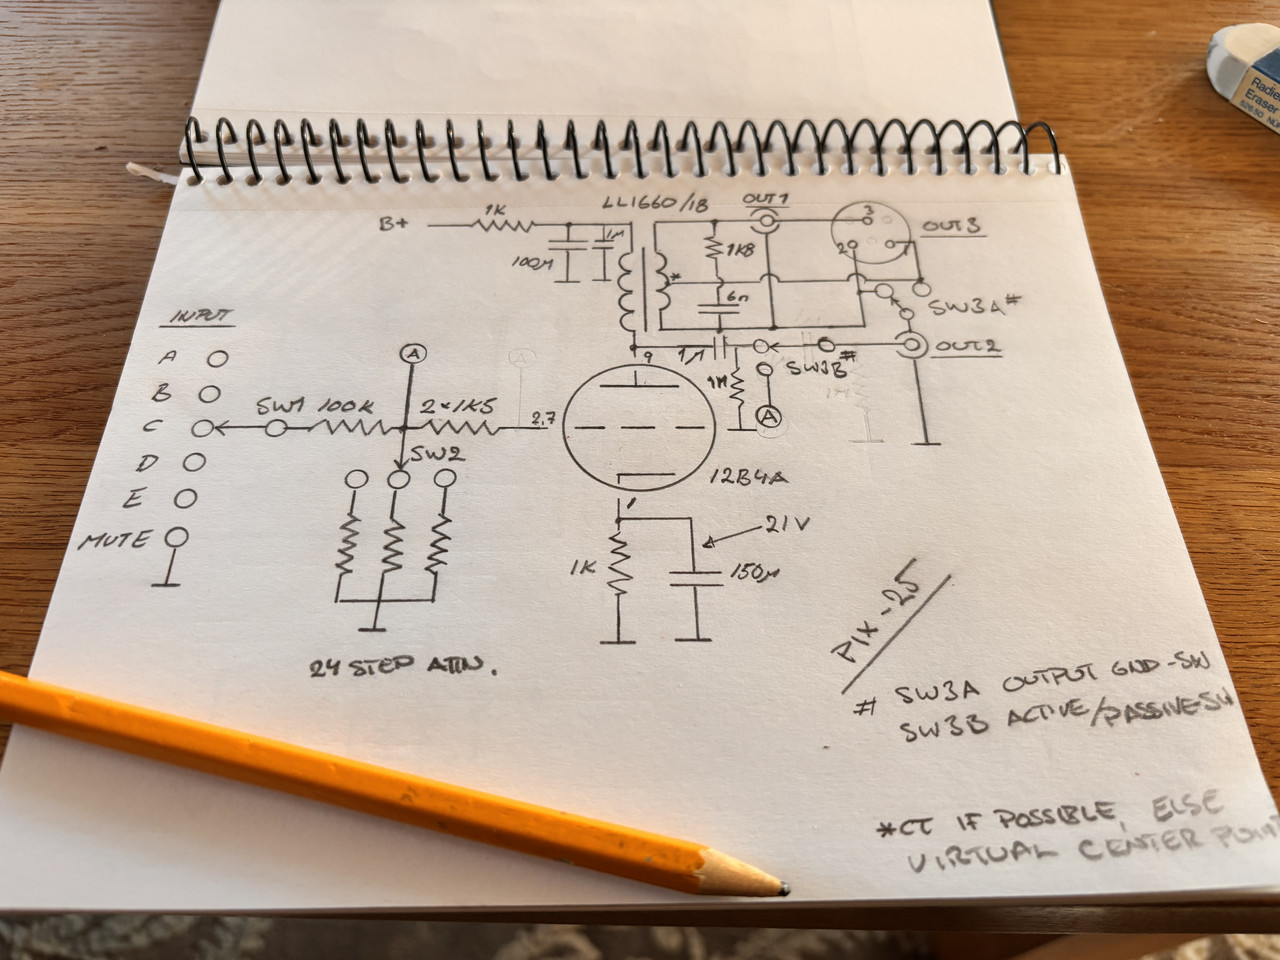 LL1660/18
OUT1
B+
1K
100µ
1µ
1K8
6n
*
3
2
1
OUT3
SW3A#
OUT2
INPUT
A
B
C
D
E
MUTE
A
SW1
100K
2×1K5
2,7
SW2
9
1µ
1M
SW3B#
A
A
1M
12B4A
1
21V
1K
150µ
24 STEP ATTN.
PIX-25
# SW3A OUTPUT GND-SW
SW3B ACTIVE/PASSIVE-SW
*CT IF POSSIBLE, ELSE
VIRTUAL CENTER POINT
Eraser